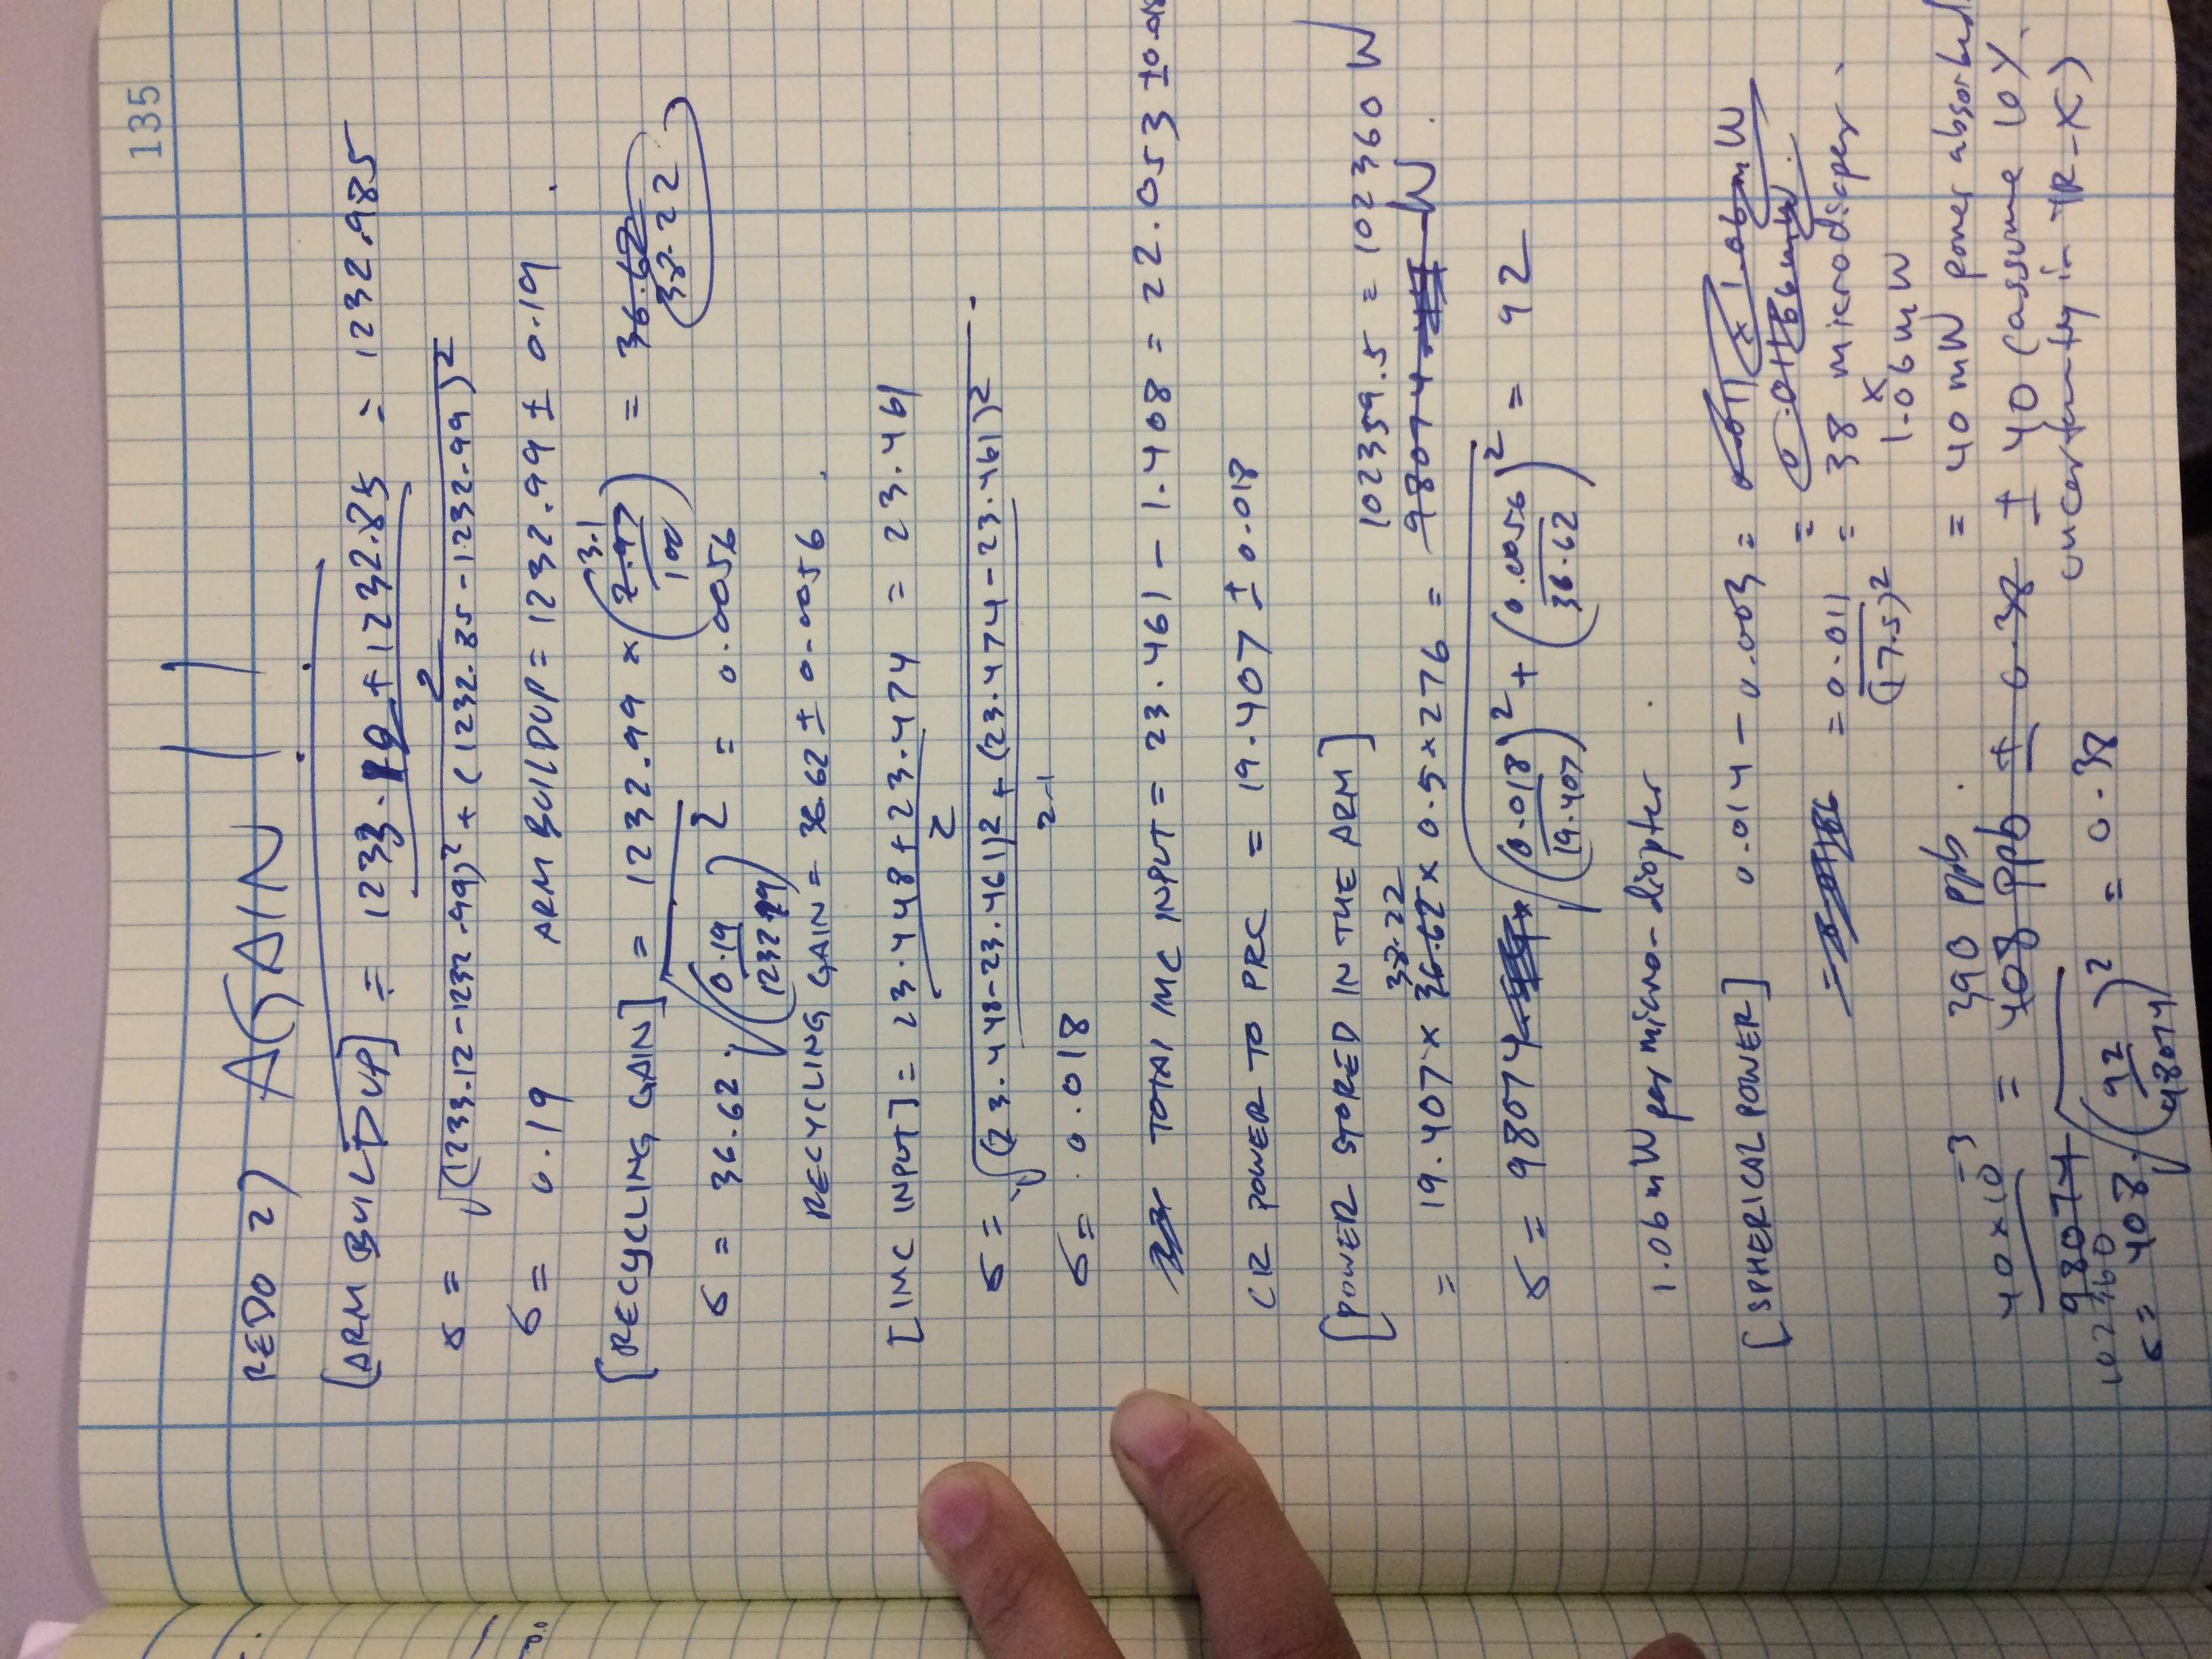 135
REDO 2) AGAIN!!
[ARM BUILDUP] = (1233.12 + 1232.85) / 2 = 1232.985
σ = √((1233.12-1232.99)² + (1232.85-1232.99)²)
σ = 0.19 ARM BUILDUP = 1232.99 ± 0.19
[RECYCLING GAIN] = 1232.99 × (2.97 3.1 / 100) = 36.62 38.22
σ = 36.62 √((0.19/1232.99)²) = 0.0056
RECYCLING GAIN = 36.62 ± 0.0056
[IMC INPUT] = (23.448 + 23.474) / 2 = 23.461
σ = √(((23.448-23.461)² + (23.474-23.461)²) / 2-1)
σ = 0.018
TOTAL IMC INPUT = 23.461 - 1.408 = 22.053 ±0.018
CR POWER TO PRC = 19.407 ± 0.018
[POWER STORED IN THE ARM]
= 19.407 × 36.62 38.22 × 0.5 × 276 = 98074 W 102359.5 = 102360 W
σ = 98074 √((0.018/19.407)² + (0.0056/36.62)²) = 92
1.06 mW per micro-diopter.
[SPHERICAL POWER] 0.014 - 0.003 = 0.011 × 1.06mW
= 0.01166mW
= 0.011 / (7.5)² = 38 microdiopter.
× 1.06 mW
= 40 mW power absorbed.
40×10⁻³ / 98074 102360 = 408 ppb 390 ppb. ± 0.38 ± 40 (assume 10%
uncertainty in TR-X)
σ = 408 √((92/98074)²) = 0.38